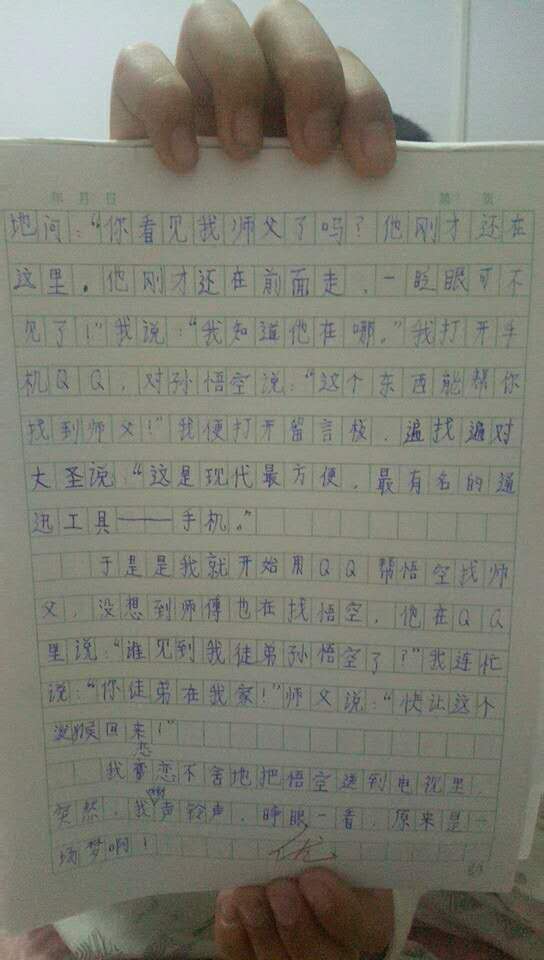 年 月 日 第 页
地问：“你看见我师父了吗？他刚才还在
这里。他刚才还在前面走，一眨眼可不
见了！”我说：“我知道他在哪。”我打开手
机QQ，对孙悟空说：“这个东西能帮你
找到师父！”我便打开留言板，边找边对
大圣说：“这是现代最方便，最有名的通
迅工具——手机。”
于是是我就开始用QQ帮悟空找师
父，没想到师傅也在找悟空，他在QQ
里说：“谁见到我徒弟孙悟空了？”我连忙
说：“你徒弟在我家！”师父说：“快让这个
泼猴回来！”
我恋恋不舍地把悟空送到电视里，
突然，我 声铃声，睁眼一看，原来是一
场梦啊！
优